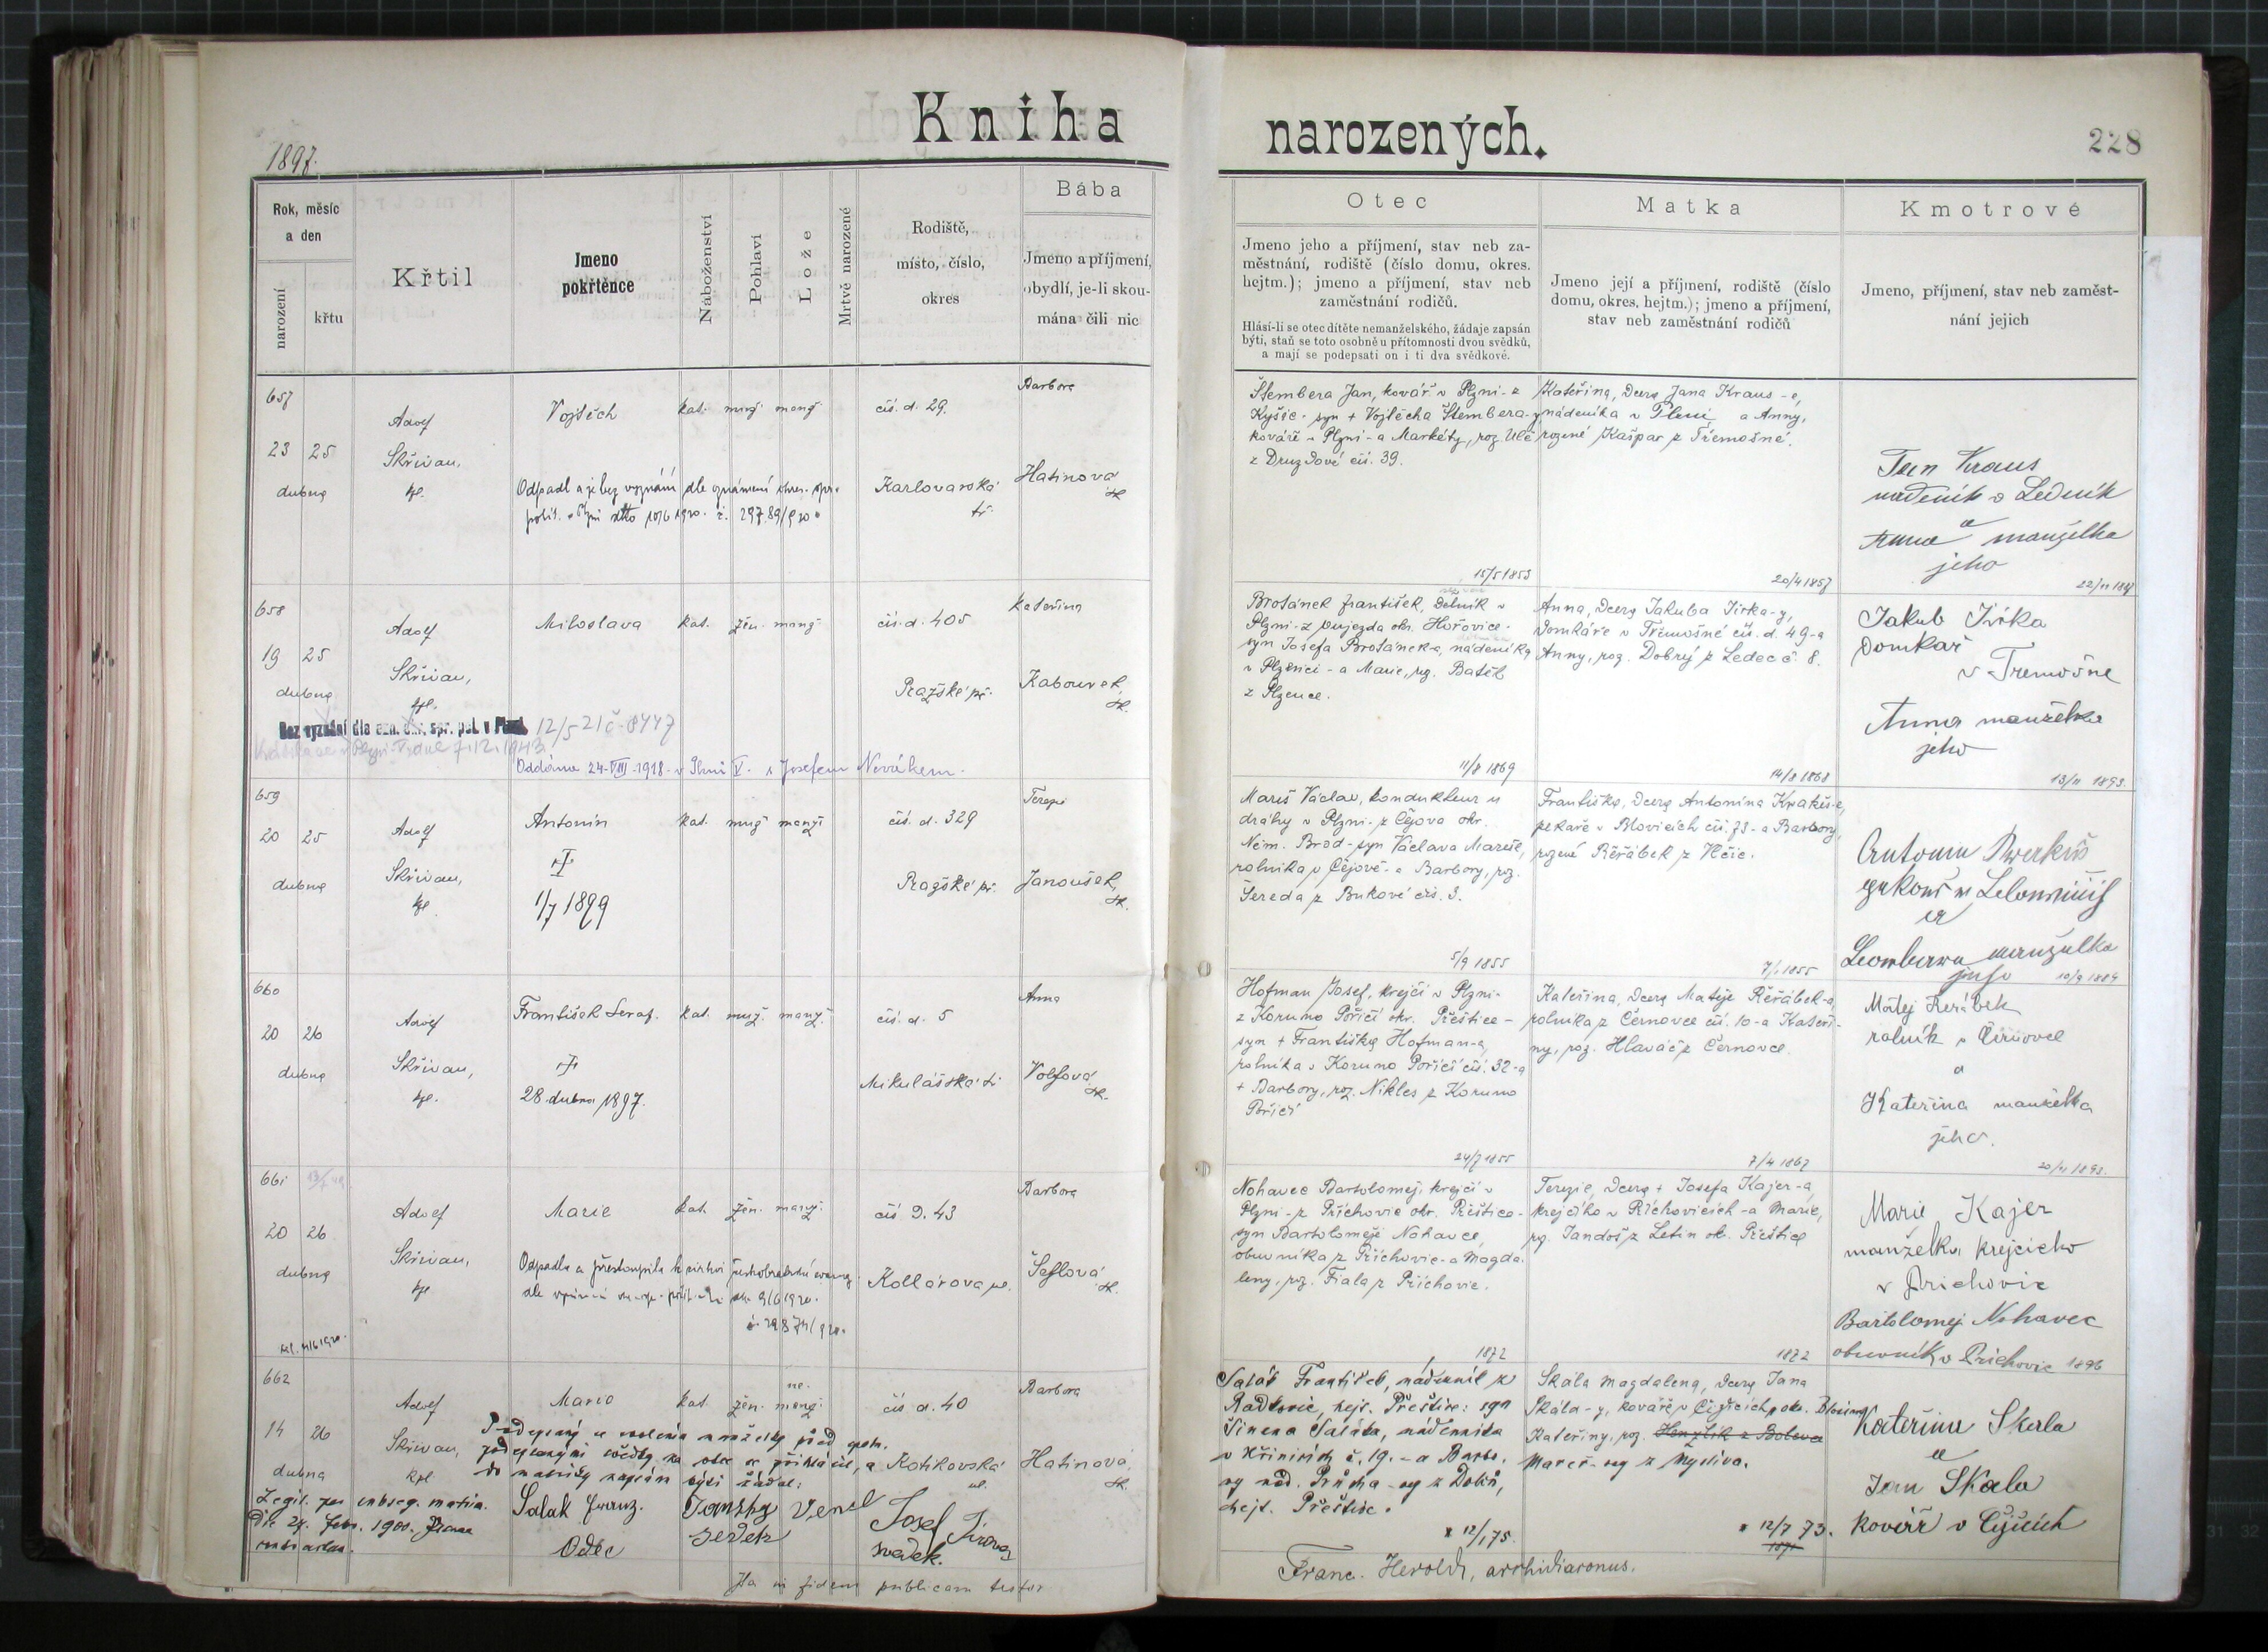 Kniha
narozených.
228
1897.
Rok, měsíc
a den
narození
křtu
Křtil
Jmeno
pokřtěnce
Náboženství
Pohlaví
Lože
Mrtvě narozené
Rodiště,
místo, číslo,
okres
Bába
Jmeno a příjmení,
obydlí, je-li skou-
mána čili nic
Otec
Jmeno jeho a příjmení, stav neb za-
městnání, rodiště (číslo domu, okres.
hejtm.); jmeno a příjmení, stav neb
zaměstnání rodičů.
Hlásí-li se otec dítěte nemanželského, žádaje zapsán
býti, staň se toto osobně u přítomnosti dvou svědků,
a mají se podepsati on i ti dva svědkové.
Matka
Jmeno její a příjmení, rodiště (číslo
domu, okres. hejtm.); jmeno a příjmení,
stav neb zaměstnání rodičů
Kmotrové
Jmeno, příjmení, stav neb zaměst-
nání jejich
657
23 25
dubna
Adolf
Skřivan,
kpl.
Vojtěch
kat. muž. manž.
Odpadl a je bez vyznání dle oznámení okres. spr.
polit. v Plzni dtto 10/6 1920. č. 297.89/920.
čís. d. 29.
Karlovarská
tř.
Barbora
Hatinová
zk.
Štembera Jan, kovář v Plzni - z
Kyšic - syn + Vojtěcha Štembera-y
kováře v Plzni - a Markéty, roz. Ulč
z Druzdové čís. 39.
15/5 1853
Kateřina, dcera Jana Kraus-e,
nádeníka v Plzni a Anny,
rozené Kašpar z Třemošné.
20/4 1857
Jan Kraus
nadenik v Lednik
a
Anna manželka
jeho
22/11 1887
658
19 25
dubna
Adolf
Skřivan,
kpl.
Miloslava
kat. žen. manž.
čís. d. 405
Pražské př.
Kateřina
Kabourek,
zk.
Bez vyznání dle ozn. okr. spr. pol. v Plzni, 12/5 21 č. 8447
Oddána 24-VIII-1918 - v Plzni V. s Josefem Novákem.
Brotánek František, dělník v
Plzni - z Oujezda okr. Hořovice -
syn Josefa Brotánek-a, nádeníka
v Plzenci - a Marie, roz. Batěk
z Plzence.
11/8 1869
Anna, dcera Jakuba Jirka-y,
domkáře v Třemošné čís. d. 49 - a
Anny, roz. Dobrý z Ledec č. 8.
14/8 1868
Jakub Jirka
Domkař
v Tremošne
Anna manželka
jeho
13/11 1893.
659
20 25
dubna
Adolf
Skřivan,
kpl.
Antonín
kat. muž. manž.
†
1/7 1899
čís. d. 329
Pražské př.
Terezie
Janoušek,
zk.
Mareš Václav, kondukteur u
dráhy v Plzni - z Čejova okr.
Něm. Brod - syn Václava Mareše,
rolníka v Čejově - a Barbory, roz.
Šereda z Bukové čís. 3.
5/9 1855
Františka, dcera Antonína Kvakeš-e,
pekaře v Blovicích čís. 73 - a Barbory,
rozené Řeřábek z Vlčic.
manželka
10/9 1884
660
20 26
dubna
Adolf
Skřivan,
kpl.
František Seraf.
kat. muž. manž.
†
28. dubna 1897.
čís. d. 5
Mikulášská tř.
Anna
Volfová
zk.
Hofman Josef, krejčí v Plzni -
z Koruno Poříčí okr. Přeštice -
syn + Františka Hofman-a,
rolníka v Koruno Poříčí čís. 32 - a
+ Barbory, roz. Nikles z Koruno
Poříčí
24/7 1855
Kateřina, dcera Matěje Řeřábek-a
rolníka z Černovce čís. 10 - a Kateři-
ny, roz. Hlaváč z Černovce.
7/4 1867
Mátej Rerábek
rolník
a
Kateřina manželka
jeho.
661
20 26
dubna
Adolf
Skřivan,
kpl.
Marie
kat. žen. manž.
Odpadla a přestoupila k církvi českobratrské evang.
čís. d. 43
Kollárova ul.
Barbora
Šeflová
zk.
Nohavec Bartoloměj, krejčí v
Plzni - z Příchovic okr. Přeštice -
syn Bartoloměje Nohavce,
obuvníka z Příchovic - a Magda-
leny, roz. Fiala z Příchovic.
1872
Terezie, dcera + Josefa Kajer-a,
krejčího v Příchovicích - a Marie,
roz. Jandoš z Letin ok. Přeštice
1872
Marie Kajer
manželka krejciho
v Prichovic
Bartolomej Nohavec
obuvník v Prichovic 1896
662
14 26
dubna
Adolf
Skřivan,
kpl.
Marie
kat. žen. ne-
manž.
čís. d. 40
Kotikovská
ul.
Barbora
Hatinová,
zk.
Legit. per subseq. matrim.
die 24. Febr. 1900.
Salak Franz.
Otec
Josef
svedek.
Ita in fidem publicam testor
Salák František, nádeník z
Radkovic, hejt. Přeštice: syn
Šimona Saláka, nádeníka
v Křinicích č. 19. - a Barbo-
ry roz. Průcha-ový z Dolců,
hejt. Přeštice.
* 12/1 75.
Skála Magdalena, dcera Jana
Skála-y, kováře v Čížicích, okr. Blovice
Kateřiny, roz. Henzlik z Bolevce
Mareš-ový z Myslíva.
* 12/7 73.
1871
Kateřina Skala
a
Jan Skala
Kovář v Čižicích
Franc. Herold, archidiaconus.